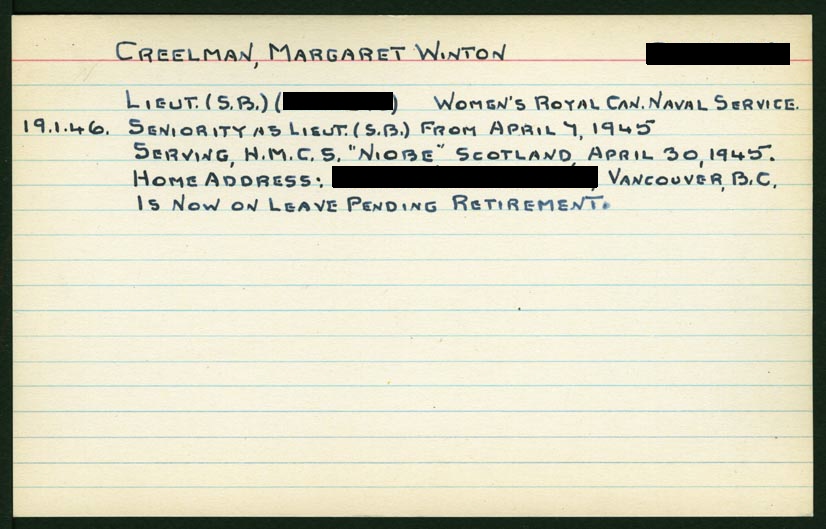 CREELMAN, MARGARET WINTON
LIEUT. (S.B.) ( ) WOMEN'S ROYAL CAN. NAVAL SERVICE.
19.1.46. SENIORITY AS LIEUT. (S.B.) FROM APRIL 7, 1945
SERVING, H.M.C.S. "NIOBE" SCOTLAND, APRIL 30, 1945.
HOME ADDRESS: , VANCOUVER, B.C.
IS NOW ON LEAVE PENDING RETIREMENT.